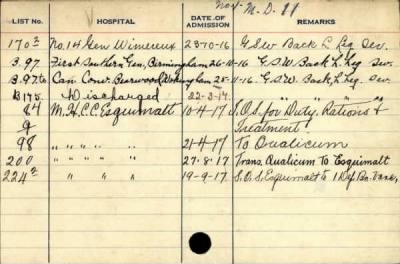 Non-M.D.11
LIST No. HOSPITAL DATE OF ADMISSION REMARKS
170² No. 14 Gen Wimereux 23-10-16 G.S.W. Back L. Leg Sev.
B.97. First Southern Gen, Birmingham 26-11-16 G.S.W. Back L. Leg Sev.
Can Conv. Bearwood, Wokingham G.S.W. Back L. Leg Sev.
B175 Discharged 22-3-17 " " " "
84 M.H.C.C. Esquimalt 10-4-17 S.O.S. for Duty, Rations &
9 Treatment.
98 " " " " 21-4-17 To Qualicum
200 " " " " 27-8-17 Trans. Qualicum To Esquimalt
224² " " " 19-9-17 S.O.S. Esquimalt to 1 Dep. Bn. Vanc,